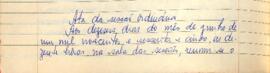 Ata da sessão ordinária
Aos dezesseis dias do mês de junho de
um mil novecentos e sessenta e cinco, às
horas, na sala das sessões, reuniu-se o